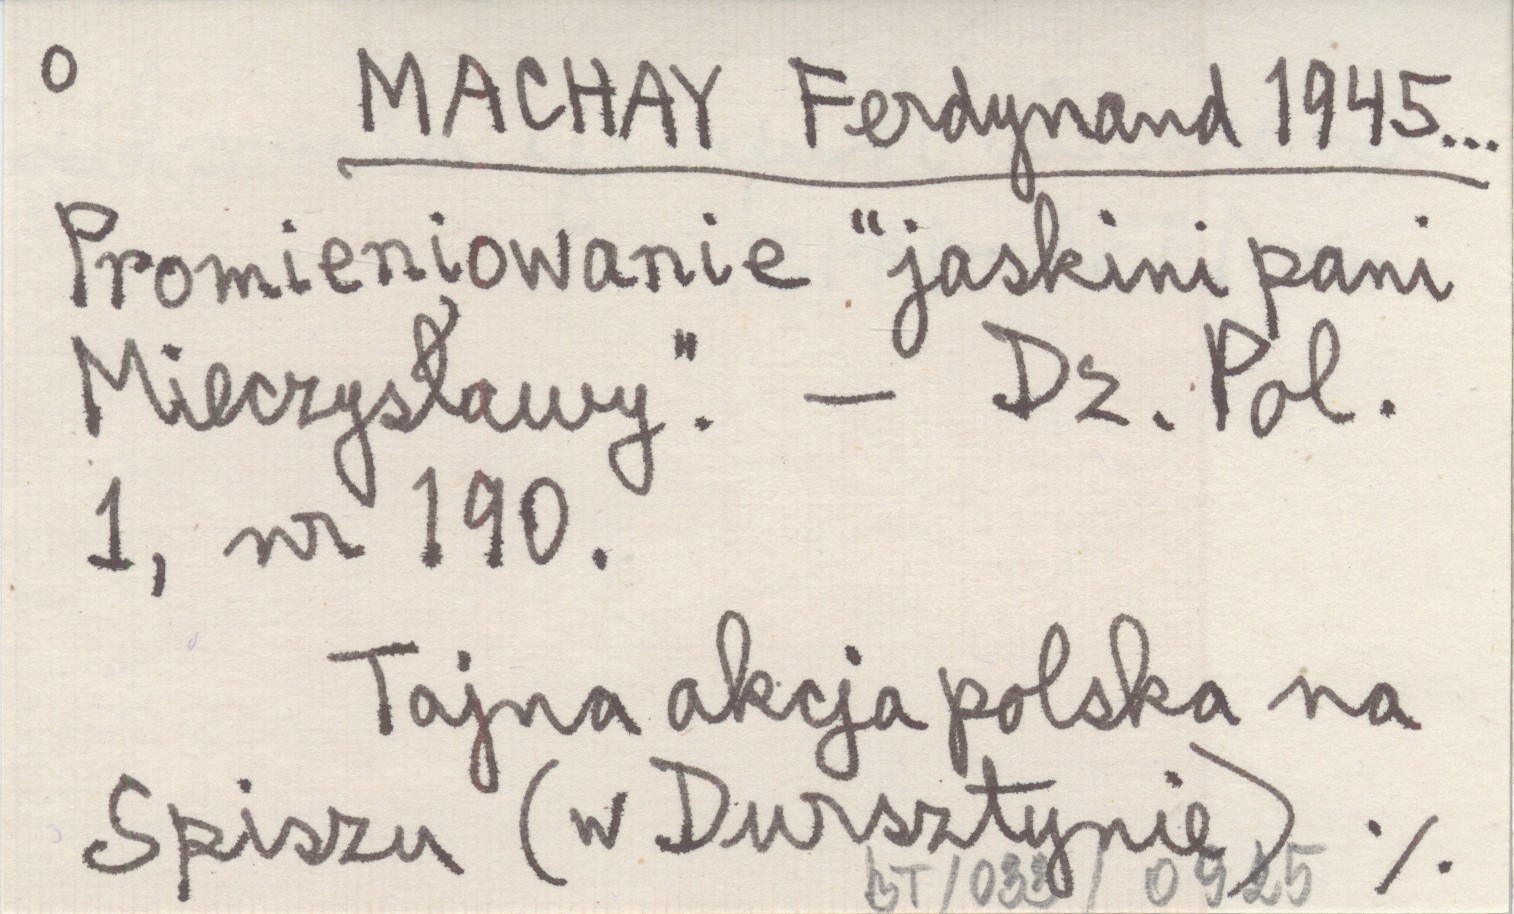 o MACHAY Ferdynand 1945...
Promieniowanie "jaskini pani
Mieczysławy". — Dz. Pol.
1, nr 190.
Tajna akcja polska na
Spiszu (w Dursztynie) ·/.
BT/033/0925